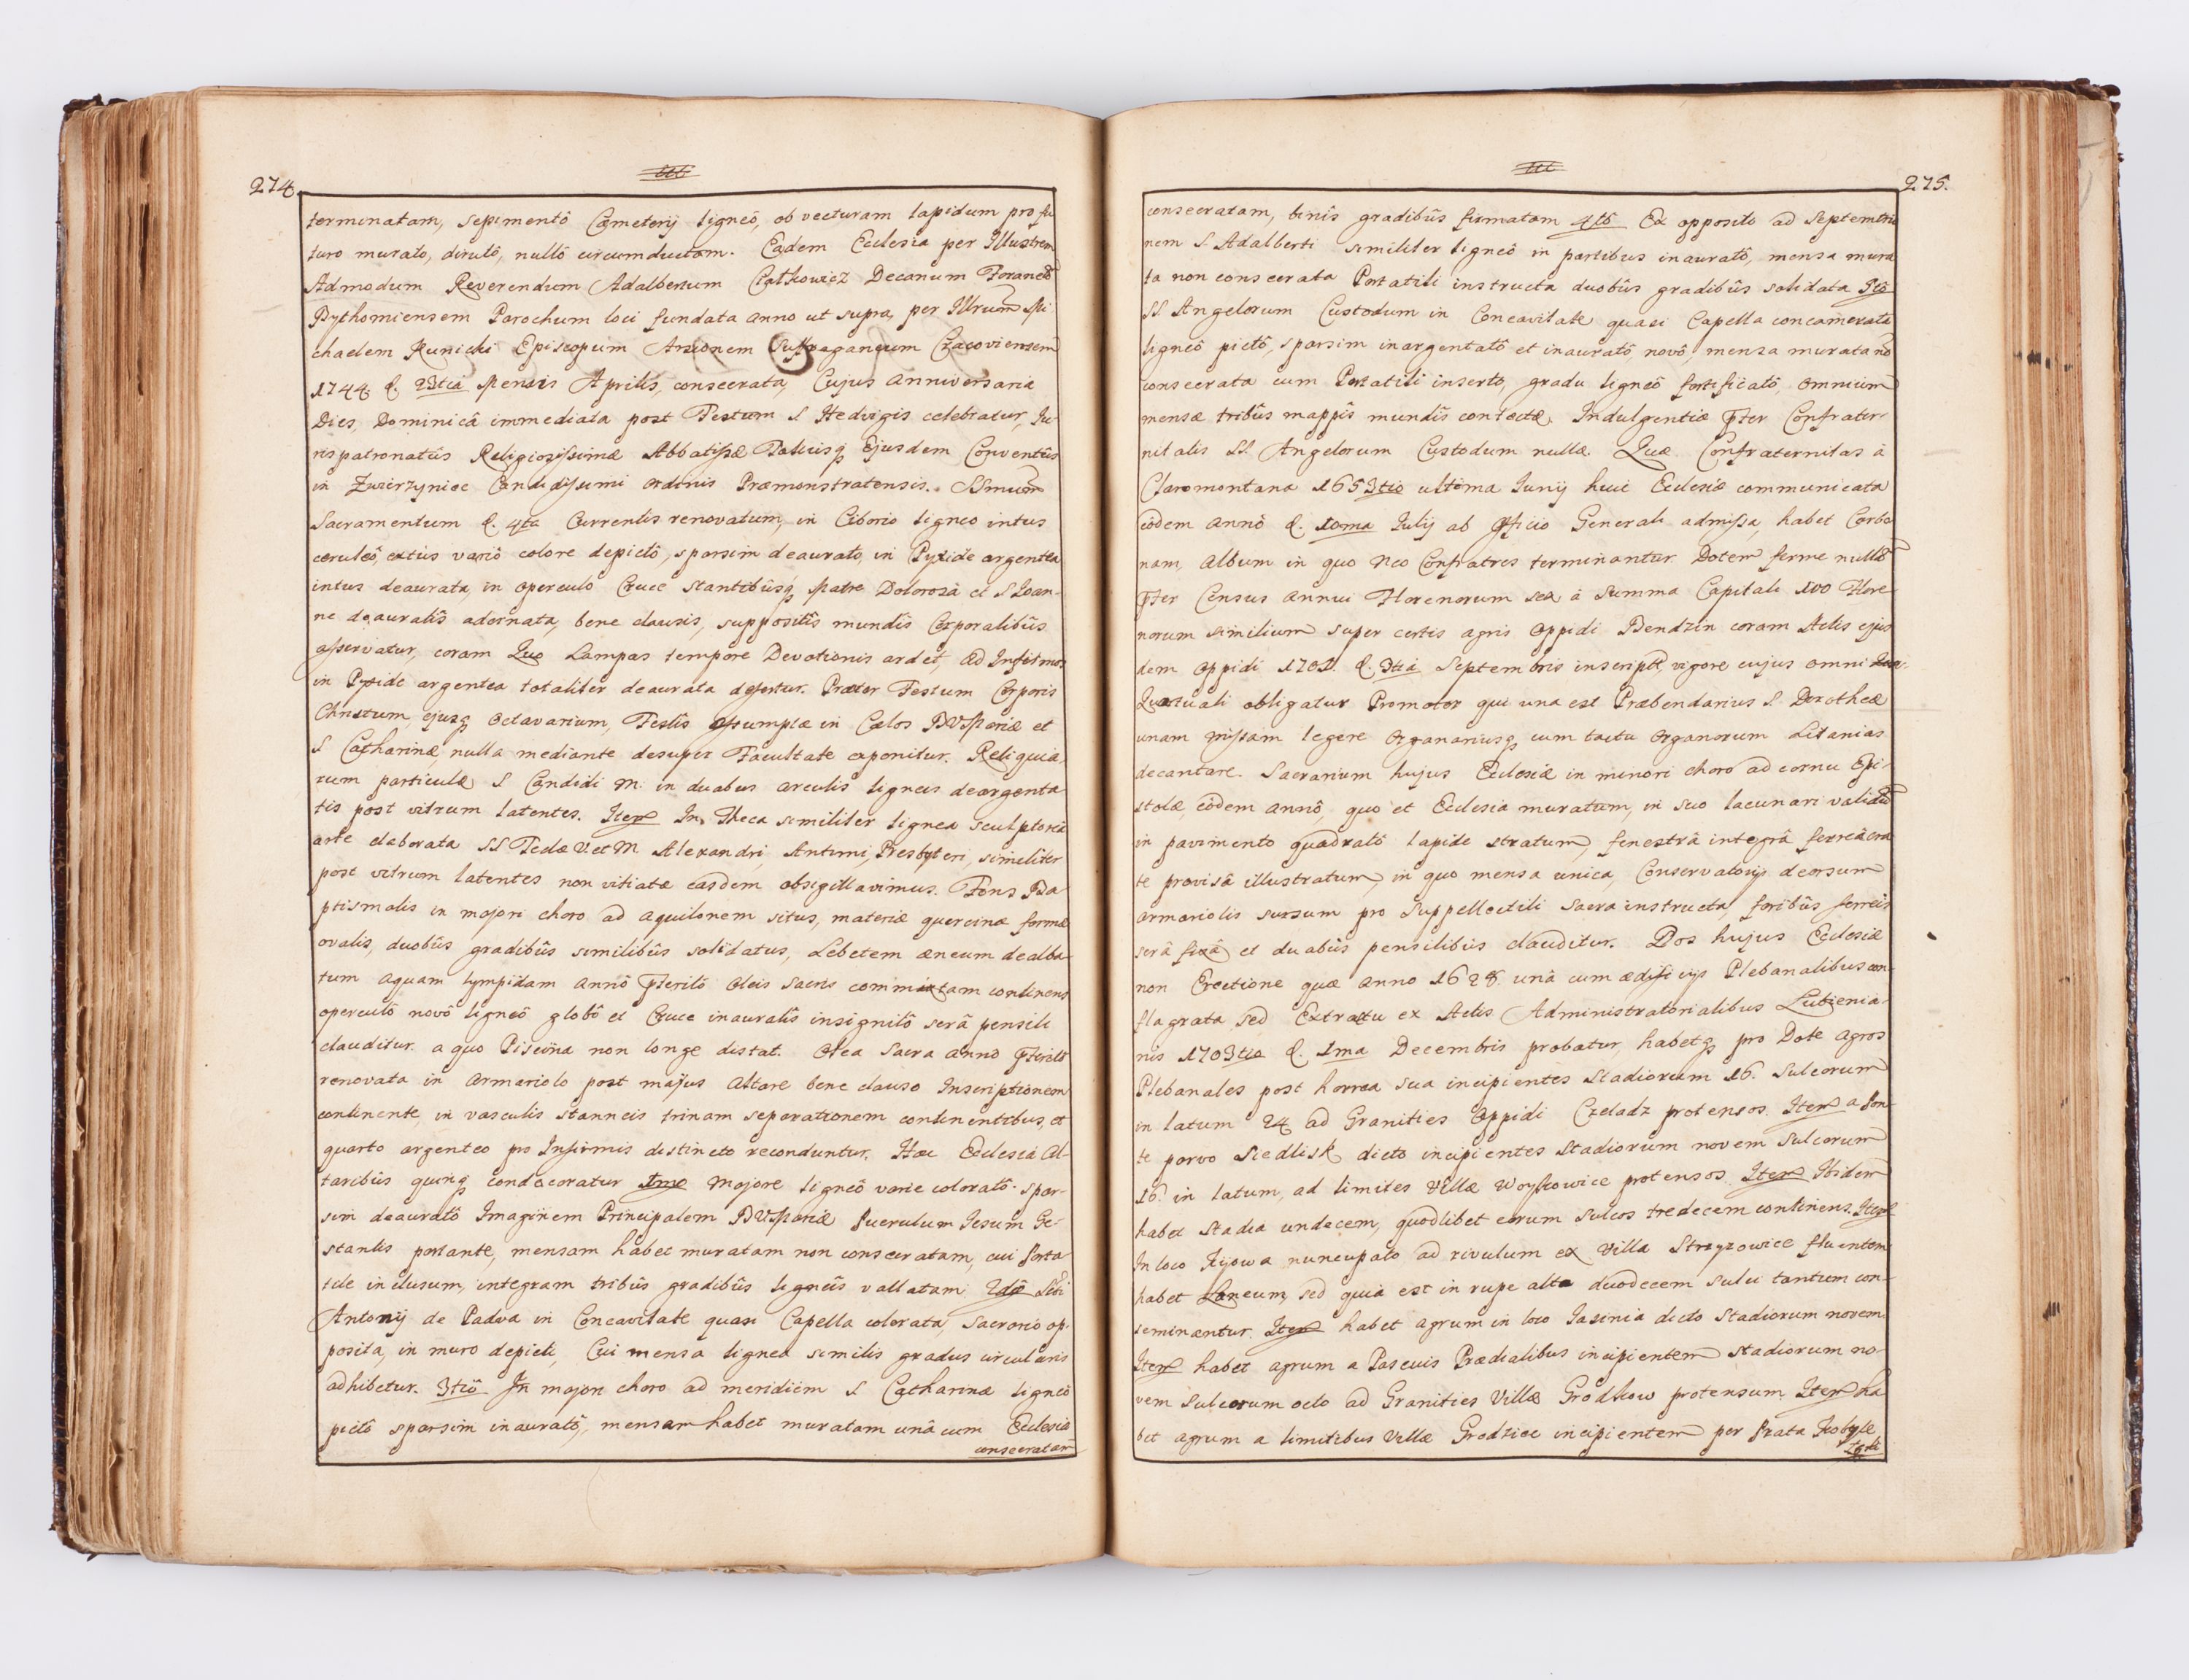 274
terminatam, sepimentô Cæmeterij ligneô, ob vecturam lapidum pro fu
turo murato, dirutô, nullô circumductam. Eadem Ecclesia per Illustrem
Admodum Reverendum Adalbertum Decanum Foraneũ
Bythomiensem Parochum loci fundata anno ut supra, per Illrum Mi
chaelem Kunicki Episcopum Arsionem Suffraganeum Cracoviensem
1744 d. 23tia Mensis Aprilis, consecrata, Cujus Anniversaria
Dies, Dominicâ immediata post Festum S Hedvigis celebratur, Ju-
rispatronatûs Religiosissimæ Abbatissæ Totiusq Ejusdem Conventûs
in Zwierzyniec Candidissimi Ordinis Præmonstratensis. SSmum
Sacramentum d. 4ta Currentis renovatum, in Ciborio ligneo intus
cæruleô, extùs variô colore depictô, sparsim deaurato, in Pyxide argentea
intus deaurata, in operculo Cruce stantibûsq Matre Dolorosâ et S Joan-
ne deauratîs adornata, bene clausis, suppositîs mundîs Corporalibûs
asservatur, coram Quo Lampas tempore Devotionis ardet, ad Infirmos
in Pyxide argentea totaliter deaurata defertur. Præter Festum Corporis
Christum, ejusq Octavarium, Festîs Assumptæ in Cælos BVMariæ et
S Catharinæ, nulla mediante desuper Facultate exponitur. Reliquia
rum particulæ S Candidi M. in duabus arculis ligneis deargenta
tis post vitrum latentes. Item In Theca similiter lignea sculptoriâ
arte elaborata SS Teclæ V. et M Alexandri, Antimi, Presbyteri, similiter
post vitrum latentes non vitiatæ easdem obsigillavimus. Fons Ba
ptismalis in majori choro ad aquilonem situs, materiæ quercinæ formæ
ovalis, duobûs gradibûs similibûs solidatus, Lebetem æneum dealba-
tum aquam lympidam annô pteritô Oleis Sacris commixtam continens
operculô novô ligneô globô et Cruce inauratîs insignitô serâ pensili
clauditur. a quo Piscina non longe distat. Olea Sacra annô pteritô
renovata in Armariolo post majus Altare bene clauso Inscriptionem
continente, in vasculis stanneis trinam separationem continentibus, et
quarto argenteo pro Infirmis distincto reconduntur. Hæc Ecclesia Al-
taribûs quinq condecoratur 1mo Majore ligneô varie coloratô. spar-
sim deauratô Imaginem Principalem BVMariæ Puerulum Jesum Ge-
stantis portante, mensam habet muratam non consecratam, cui Porta-
tile inclusum, integram tribûs gradibûs ligneîs vallatam. 2dô
Antonij de Padva in Concavitate quasi Capella colorata, Sacrario op-
posita, in muro depicti, Cui mensa lignea similis gradus circularis
adhibetur. 3tiô In majori choro ad meridiem S Catharinæ ligneô
pictô sparsim inauratô, mensam habet muratam unâ cum Ecclesia
consecratam
275.
consecratam, binîs gradibûs firmatam 4tô Ex opposito ad Septemtrio
nem S. Adalberti similiter ligneô in partibus inauratô, mensa mura
ta non consecrata Portatili instructa duobûs gradibûs solidata 5tô
SS. Angelorum Custodum in Concavitate quasi Capella concamerata
ligneô pictô, sparsim inargentatô et inauratô novô, mensa murata nõ
consecrata cum Portatili inserto, gradu ligneô fortificatô, omnium
mensæ tribûs mappîs mundîs contectæ. Indulgentiæ pter Confrater-
nitatis SS. Angelorum Custodum nullæ. Quæ Confraternitas à
Claromontana 1653tio ultima Junij huic Ecclesiæ communicata
eôdem annô d. 10ma Julij ab Officio Generali admissa, habet Carbo
nam, Album in quo Neo Confratres terminantur. Dotem ferme nullã
pter Census annui Florenorum sex à Summa Capitali 100 Flore-
norum similium super certis agris Oppidi Bendzin coram Actis ejus
dem Oppidi 1701. d. 3tiâ Septembris inscripta, vigore cujus omni
Quartuali obligatur Promotor qui una est Præbendarius S. Dorotheæ
unam missam legere Organariusq cum tactu Organorum Litanias
decantare. Sacrarium hujus Ecclesiæ in minori choro ad cornu Epi-
stolæ, eôdem annô, quo et Ecclesia muratum, in suo lacunari validũ
in pavimento quadratô lapide stratum, fenestrâ integrâ ferreâ cra
te provisâ illustratum, in quo mensa unica, Conservatorijs deorsum
armariolis sursum pro Suppellectili Sacra instructa, foribûs ferreis
serâ fixâ et duabûs pensilibûs clauditur. Dos hujus Ecclesiæ
non Erectione quæ anno 1628 unâ cum ædificijs Plebanalibus con-
flagrata sed Extractu ex Actis Administratorialibus Lubienia-
nis 1703tio d. 1ma Decembris probatur, habetq pro Dote agros
Plebanales post horrea sua incipientes Stadiorum 16. Sulcorum
in latum 24 ad Granities Oppidi Czeladz protensos. Item a Fon-
te parvo Siedlisk dicto incipientes Stadiorum novem Sulcorum
16. in latum, ad limites Villæ Woykowice protensos. Item Ibidem
habet Stadia undecem, quodlibet eorum Sulcos tredecem continens. Item
In loco Kijowa nuncupato ad rivulum ex Villa Strzyzowice fluentem
habet Laneum, sed quia est in rupe alta duodecem sulci tantum con-
seminantur. Item habet agrum in loco Jasinia dicto Stadiorum novem
Item habet agrum a Pascuis Prædialibus incipientem Stadiorum no-
vem Sulcorum octo ad Granities Villæ Grodkow protensum. Item ha
bet agrum a limitibus Villæ Grodziec incipientem per Prata Kobyle